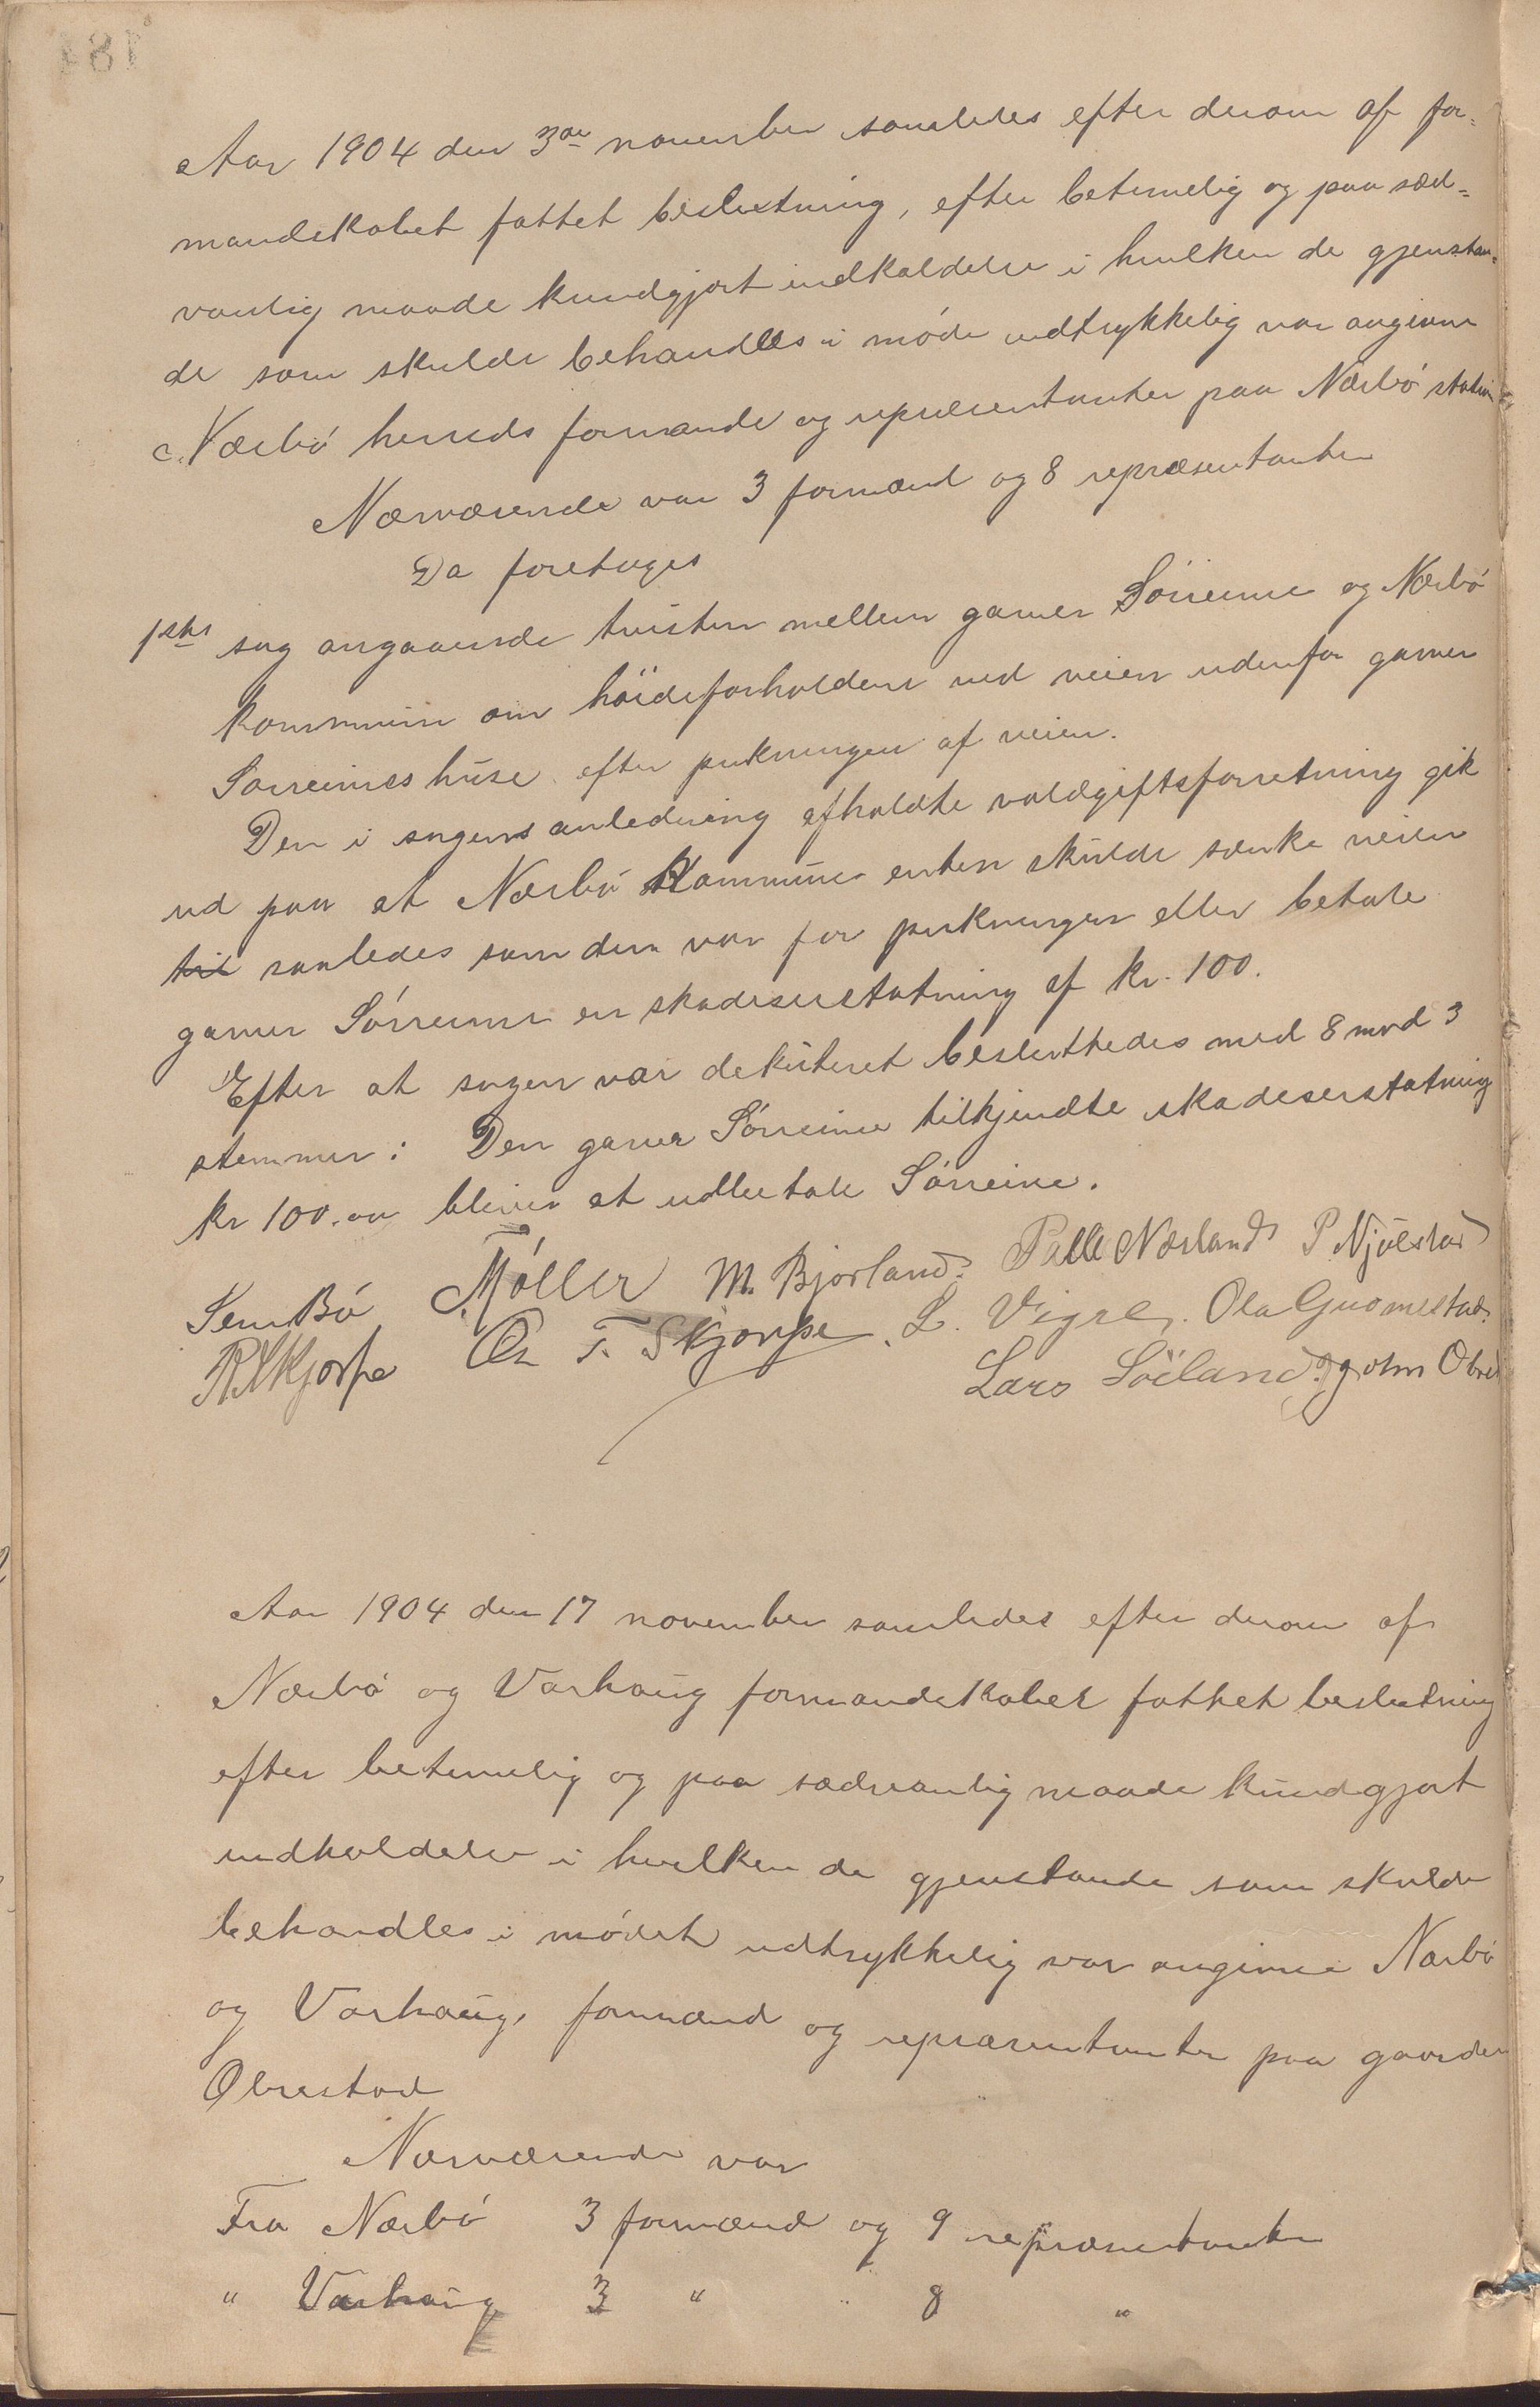 Aar 1904 den 3de november samledes efter derom af for-
mandskabet fattet beslutning, efter betimelig og paa sæd-
vanlig maade kundgjort indkaldelse i hvilken de gjenstan-
de som skulde behandles i møde udtrykkelig var angivne
Nærbø herreds formænde og repræsentanter paa Nærbø station
Nærværende var 3 formænd og 8 repræsentanter
Da foretoges
1ste sag angaaende tvisten mellem garver Sørreime og Nærbø
kommune om høideforholdene ved veien udenfor garver
Sørreimes huse efter pukningen af veien.
Den i sagens anledning afholdte voldgiftsforretning gik
ud paa at Nærbø Kommune enten skulde sænke veien
til saaledes som den var før pukningen eller betale
garver Sørreime en skadeserstatning af kr. 100.
Efter at sagen var dekuteret besluttedes med 8 mod 3
stemmer: Den garver Sørreime tilkjendte skadeserstatning
kr 100.00 bliver at udbetale Sørreime.
Sem Bø Møller M. Bjorland. Palle Nærland P Njølstad
R Skjorpe Ola T. Skjorpe. L. Vigre. Ola Guomestad.
Lars Söiland. John Obrest
Aar 1904 den 17 november samledes efter derom af
Nærbø og Varhaug formandskaber fattet beslutning
efter betimelig og paa sædvanlig maade kundgjort
indkaldelse i hvilken de gjenstande som skulde
behandles i mødet udtrykkelig var angivne Nærbø
og Varhaug formænd og repræsentanter paa gaarden
Obrestad
Nærværende var
Fra Nærbø 3 formænd og 9 repræsentanter
" Varhaug 3 " " 8 "